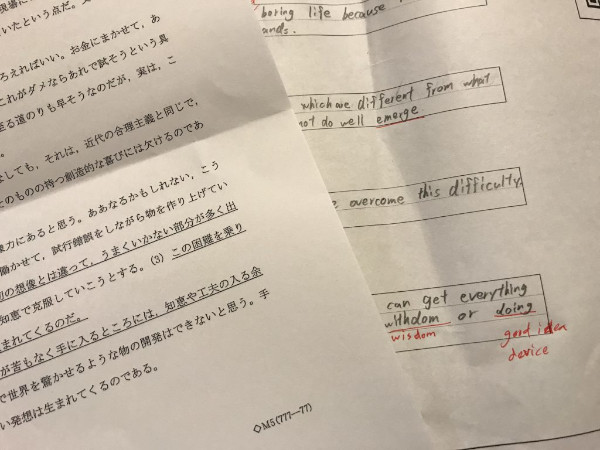 いたという点だ。
ろえればいい。お金にまかせて、あ
これがダメならあれで試そうという具
至る道のりも早そうなのだが、実は、こ
しても、それは、近代の合理主義と同じで、
そのものの持つ創造的な喜びには欠けるのであ
力にあると思う。ああなるかもしれない、こう
働かせて、試行錯誤をしながら物を作り上げてい
の想像とは違って、うまくいかない部分が多く出
知恵で克服していこうとする。(3) この困難を乗り
まれてくるのだ。
が苦もなく手に入るところには、知恵や工夫の入る余
で世界を驚かせるような物の開発はできないと思う。手
い発想は生まれてくるのである。
◇M5(777—77)
boring life because
ands.
which are different from what
not do well emerge
overcome this difficulty.
can get everything
withdom or doing
wisdom good idea
device